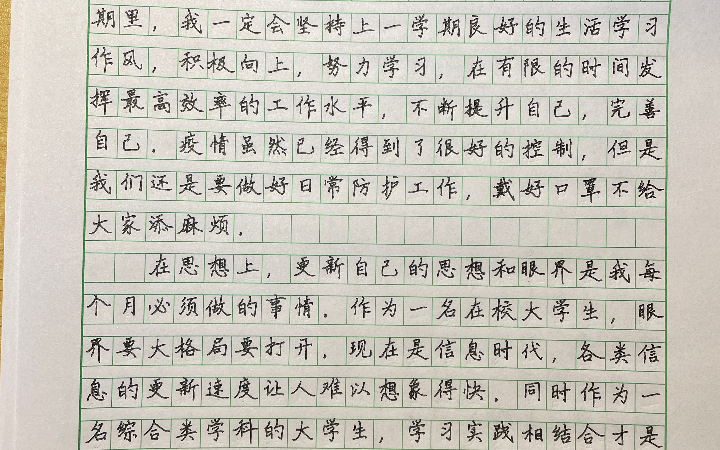 期里，我一定会坚持上一学期良好的生活学习
作风，积极向上，努力学习，在有限的时间发
挥最高效率的工作水平，不断提升自己，完善
自己．疫情虽然已经得到了很好的控制，但是
我们还是要做好日常防护工作，戴好口罩不给
大家添麻烦．
在思想上，更新自己的思想和眼界是我每
个月必须做的事情．作为一名在校大学生，眼
界要大格局要打开．现在是信息时代，各类信
息的更新速度让人难以想象得快．同时作为一
名综合类学科的大学生，学习实践相结合才是